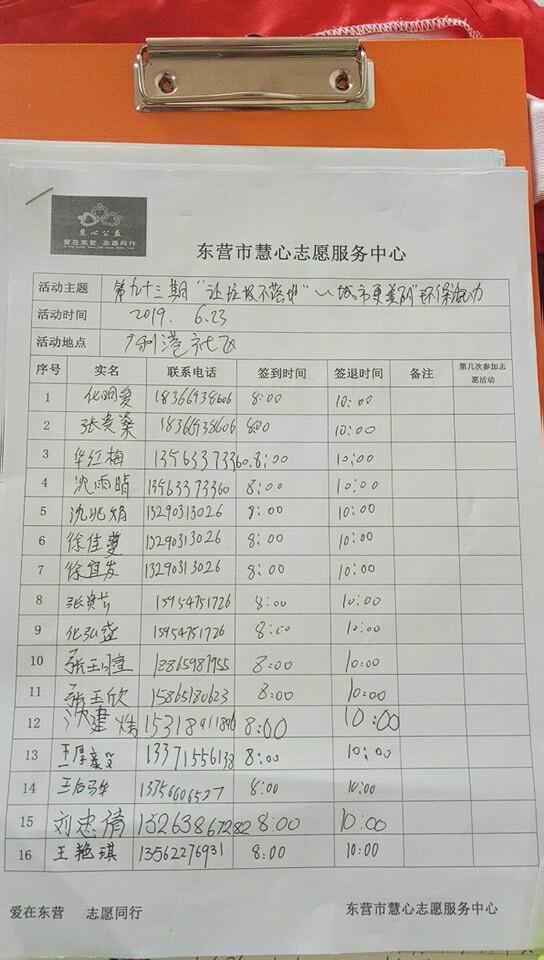 慧心公益
爱在东营 志愿同行
东营市慧心志愿服务中心
活动主题 第九十三期“让垃圾不落地” 城市更美丽”环保活动
活动时间 2019. 6.23
活动地点 广利港社区
序号 实名 联系电话 签到时间 签退时间 备注 第几次参加志愿活动
1 18366938606 8:00 10:00
2 18366938606 8:00 10:00
3 华红梅 13563373360 8:00 10:00
4 沈雨晴 13563373360 8:00 10:00
5 沈兆娟 13290313026 8:00 10:00
6 徐佳蔓 13290313026 8:00 10:00
7 徐宜发 13290313026 8:00 10:00
8 15954751726 8:00 10:00
9 化弘盛 15954751726 8:00 10:00
10 8:00 10:00
11 张玉欣 15865180623 8:00 10:00
12 8:00 10:00
13 13371556138 8:00 10:00
14 13756606527 8:00 10:00
15 刘忠倩 15263867282 8:00 10:00
16 王艳琪 13562276931 8:00 10:00
爱在东营 志愿同行 东营市慧心志愿服务中心